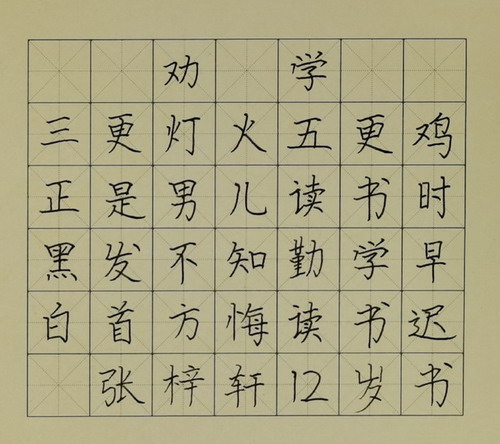 劝学
三更灯火五更鸡
正是男儿读书时
黑发不知勤学早
白首方悔读书迟
张梓轩12岁书